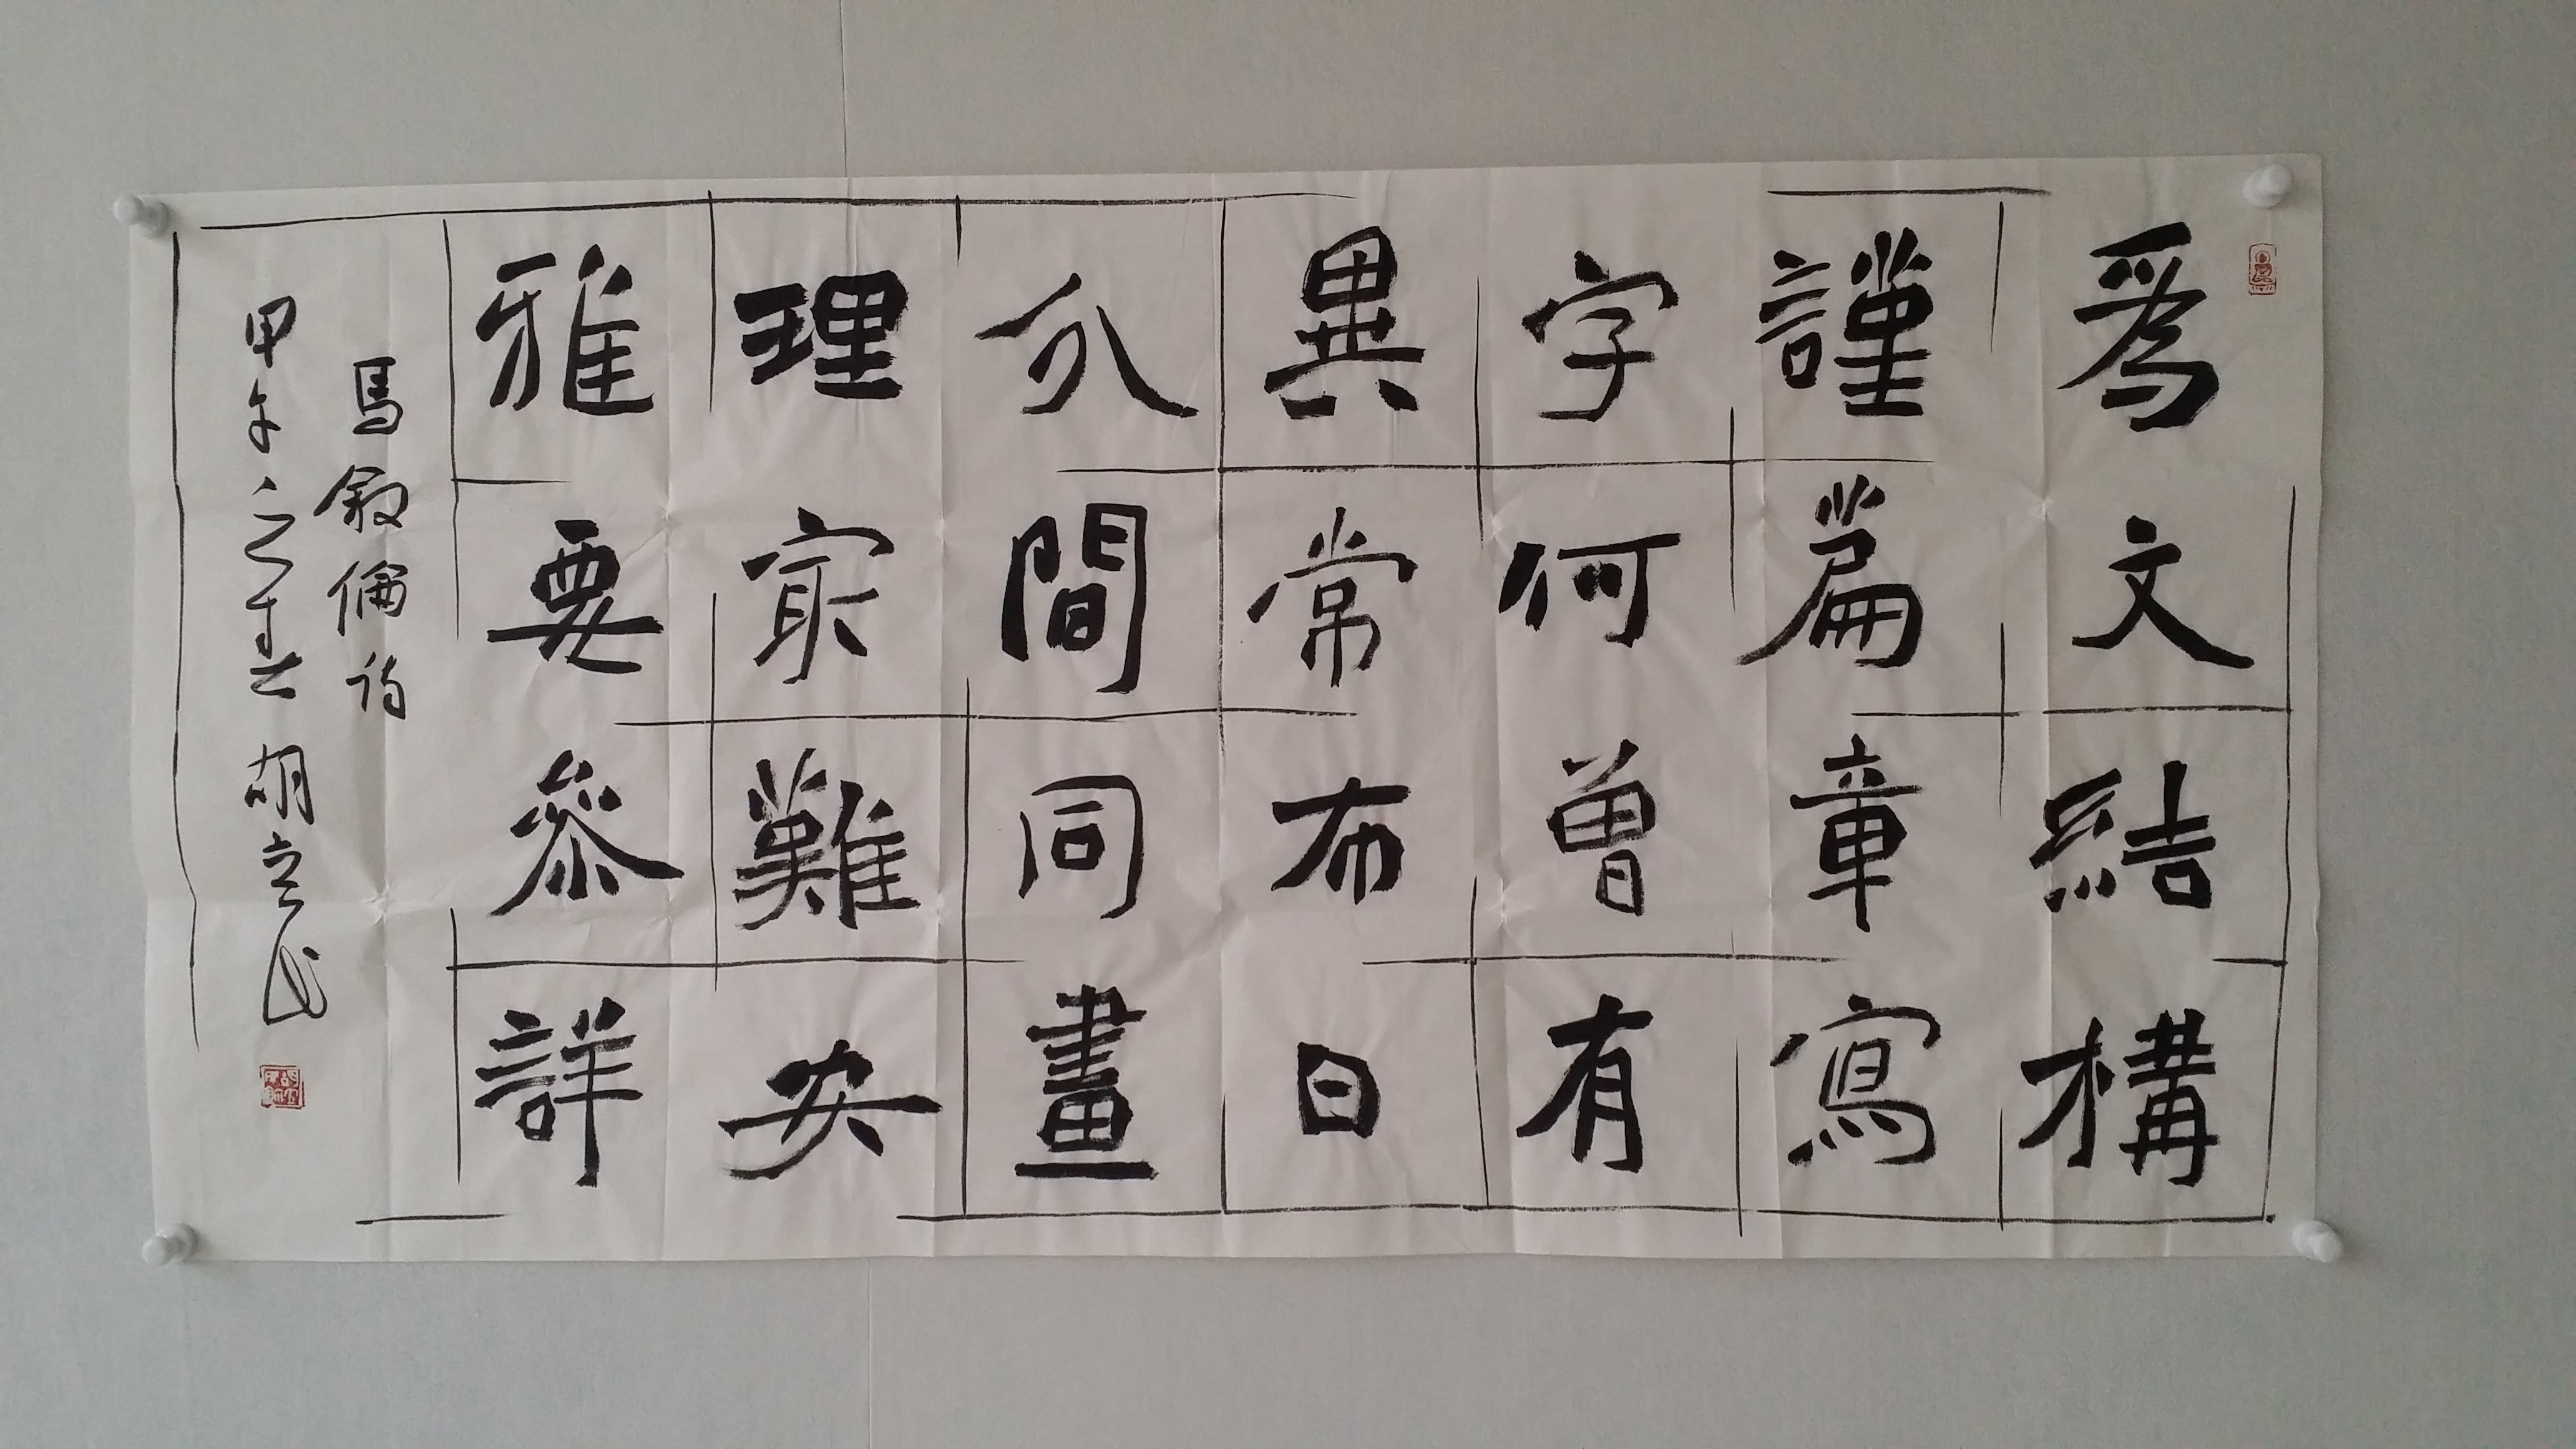 爲文結構
謹篇章寫
字何曾有
異常布白
分間同畫
理㝡難安
雅要參詳
馬叙倫詩
甲午之春 胡立民